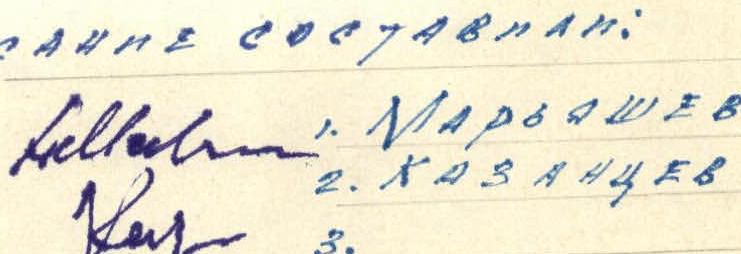 САНИЕ СОСТАВИЛИ:
1. МАРЬЯШЕВ
2. КАЗАНЦЕВ
3.